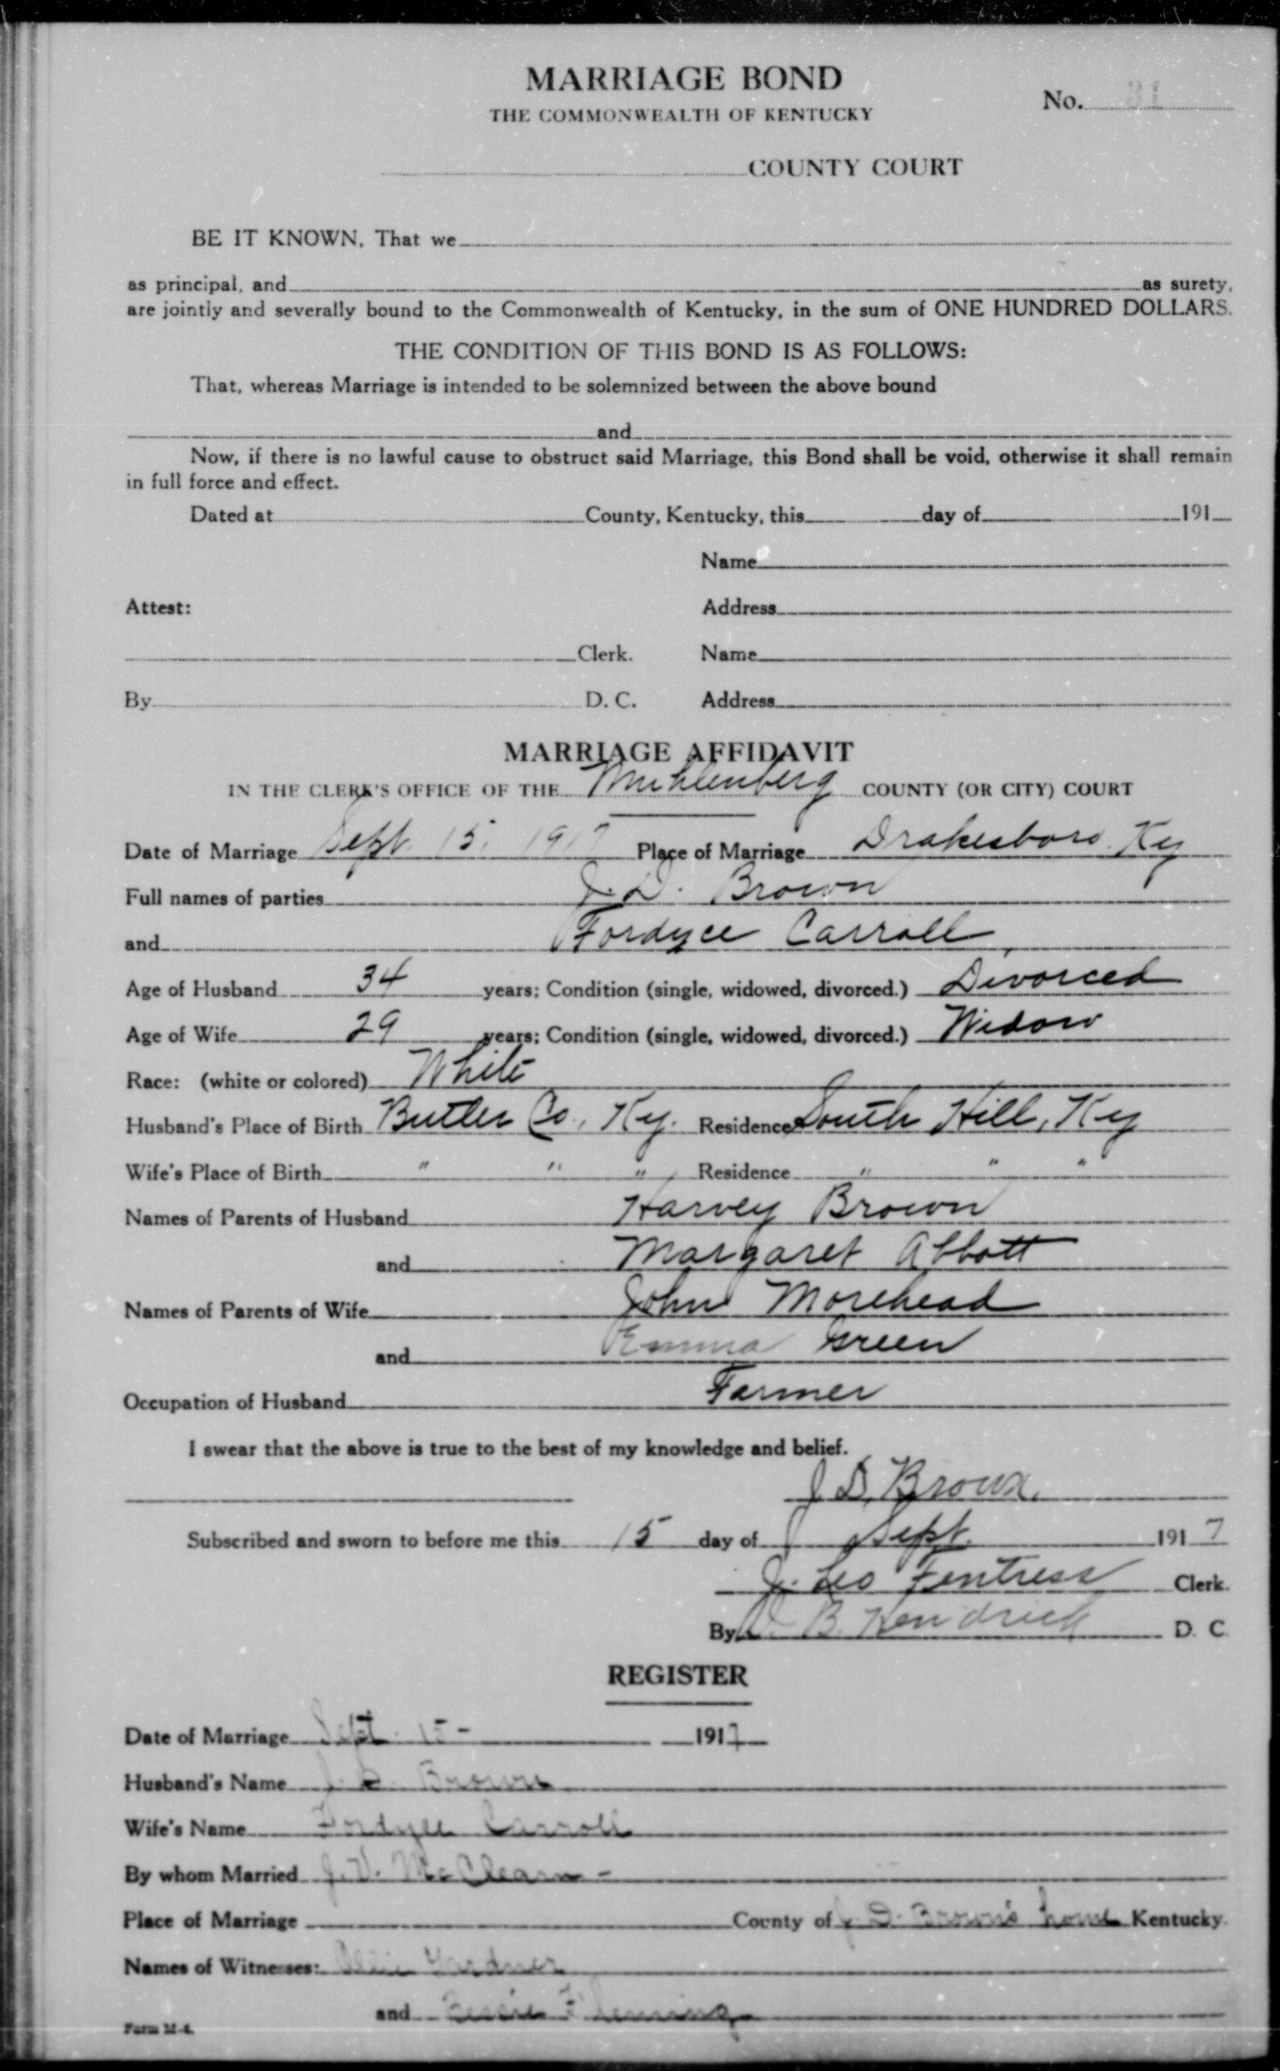 MARRIAGE BOND
THE COMMONWEALTH OF KENTUCKY
No. 31
COUNTY COURT
BE IT KNOWN, That we
as principal, and as surety,
are jointly and severally bound to the Commonwealth of Kentucky, in the sum of ONE HUNDRED DOLLARS.
THE CONDITION OF THIS BOND IS AS FOLLOWS:
That, whereas Marriage is intended to be solemnized between the above bound
and
Now, if there is no lawful cause to obstruct said Marriage, this Bond shall be void, otherwise it shall remain
in full force and effect.
Dated at County, Kentucky, this day of 191
Name
Attest: Address
Clerk. Name
By D. C. Address
MARRIAGE AFFIDAVIT
IN THE CLERK'S OFFICE OF THE Muhlenberg COUNTY (OR CITY) COURT
Date of Marriage Sept. 15, 1917 Place of Marriage Drakesboro, Ky
Full names of parties J. D. Brown
and Fordyce Carroll,
Age of Husband 34 years; Condition (single, widowed, divorced.) Divorced
Age of Wife 29 years; Condition (single, widowed, divorced.) Widow
Race: (white or colored) White
Husband's Place of Birth Butler Co., Ky. Residence South Hill, Ky
Wife's Place of Birth " " " Residence " " "
Names of Parents of Husband Harvey Brown
and Margaret Abbott
Names of Parents of Wife John Morehead
and Emma Green
Occupation of Husband Farmer
I swear that the above is true to the best of my knowledge and belief.
J. D. Brown.
Subscribed and sworn to before me this 15 day of Sept. 1917
J. Leo Fentress Clerk.
By B. Kendrick D. C.
REGISTER
Date of Marriage Sept. 15- 1917
Husband's Name J. D. Brown
Wife's Name Fordyce Carroll
By whom Married J. V. McClearn -
Place of Marriage County of J. D. Brown's home Kentucky.
Names of Witnesses: Ollie Gardner
and Bessie Fleming
Form M-4.